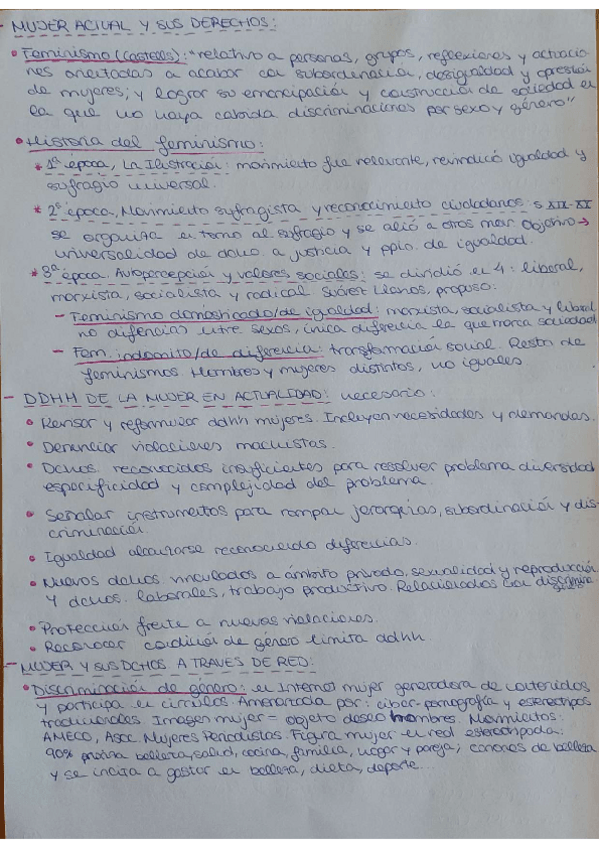 - MUJER ACTUAL Y SUS DERECHOS:
• Feminismo (Castells): "relativo a personas, grupos, reflexiones y actuacio-
nes orientadas a acabar con subordinación, desigualdad y opresión
de mujeres; y lograr su emancipación y construcción de sociedad en
la que no haya cabida discriminaciones por sexo y género"
• Historia del feminismo:
* 1ª época, La Ilustración: movimiento fue relevante, reivindicó igualdad y
sufragio universal.
* 2ª época, Movimiento sufragista y reconocimiento ciudadanos: s XIX-XX
se organiza en torno al sufragio y se alió a otros mov. Objetivo →
universalidad de dcho. a justicia y ppio. de igualdad.
* 3ª época. Autopercepción y valores sociales: se dividió en 4: liberal,
marxista, socialista y radical. Suárez Llanos, propuso:
- Feminismo domesticado/de igualdad: marxista, socialista y liberal
no difencias entre sexos, única diferencia la que marca sociedad
- Fem. indomito/de diferencia: transformación social. Resto de
feminismos. Hombres y mujeres distintos, no iguales
- DDHH DE LA MUJER EN ACTUALIDAD: necesario:
• Revisar y reformular ddhh mujeres. Incluyen necesidades y demandas.
• Denunciar violaciones machistas.
• Dchos. reconocidos insuficientes para resolver problema diversidad
especificidad y complejidad del problema.
• Señalar instrumentos para romper jerarquías, subordinación y dis-
criminación.
• Igualdad alcanzarse reconociendo diferencias.
• Nuevos dchos. vinculados a ámbito privado, sexualidad y reproducción
y dchos. laborales, trabajo productivo. Relacionados con
• Protección frente a nuevas violaciones.
• Reconocer condición de género limita ddhh
- MUJER Y SUS DCHOS A TRAVES DE RED:
• Discriminación de género: en Internet mujer generadora de contenidos
y participa en círculos. Amenazada por: ciber-pornografía y estereotipos
tradicionales. Imagen mujer = objeto deseo hombres. Movimientos:
AMECO, Asoc Mujeres Periodistas. Figura mujer en red estereotipada:
90% belleza, salud, cocina, familia, hogar y pareja; canones de belleza
y se incita a gastar en belleza, dieta, deporte...